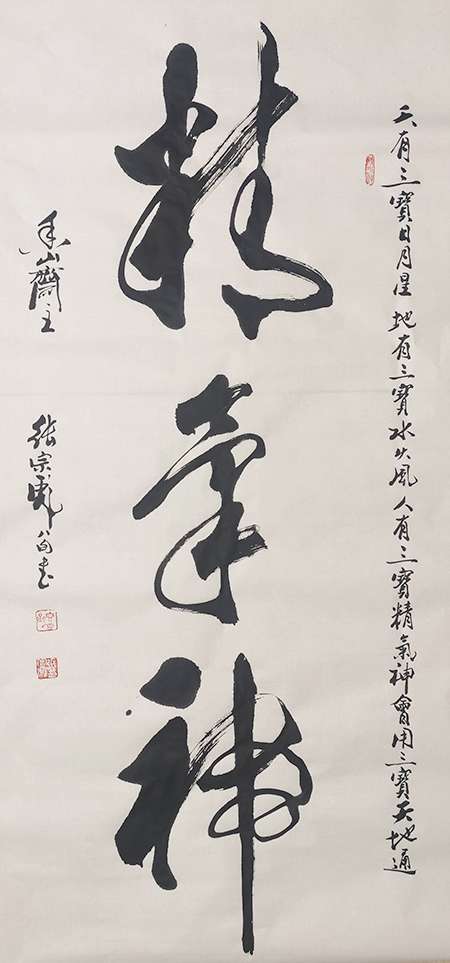 天有三寶日月星 地有三寶水火風 人有三寶精氣神會用三寶天地通
精氣神
香山齋主
張宗彪 書